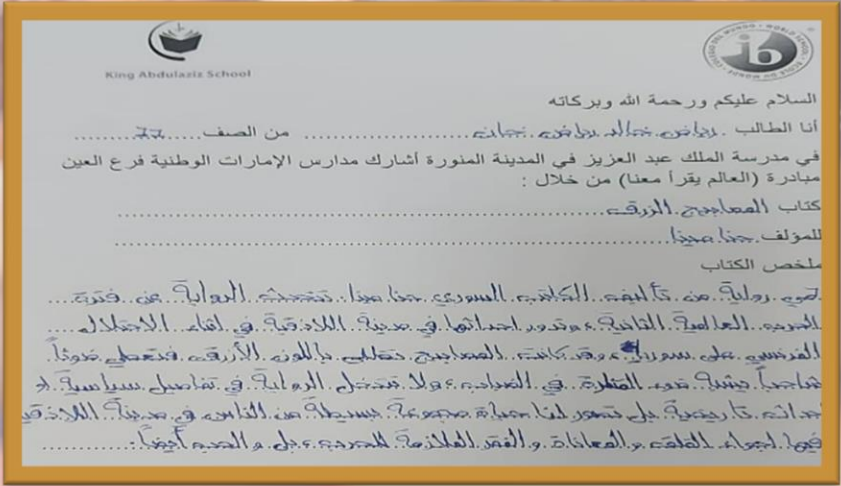 King Abdulaziz School
WORLD SCHOOL
ib
السلام عليكم ورحمة الله وبركاته
أنا الطالب رياض خالد رياض من الصف
في مدرسة الملك عبد العزيز في المدينة المنورة أشارك مدارس الإمارات الوطنية فرع العين
مبادرة (العالم يقرأ معنا) من خلال :
كتاب المصابيح الزرق
للمؤلف حنا مينا
ملخص الكتاب
هي رواية من تأليف الكاتب السوري حنا مينا تتحدث الرواية عن فترة
الحرب العالمية الثانية، وتدور احداثها في مدينة اللاذقية في اثناء الاحتلال
الفرنسي على سوريا، وقد كانت المصابيح تطلى باللون الأزرق فتعطي ضوئاً
شاحباً يشبه ضوء في الضباب، ولا تتدخل الرواية في تفاصيل سياسية
احداث تاريخية بل تصور لنا حياة مجموعة بسيطة من الناس في مدينة اللاذقية
فيها اجواء القلق والمعاناة والفقر الملازمة للحرب، بل والحب أيضاً.